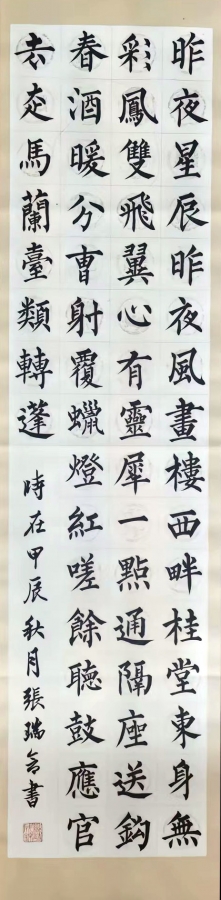 昨夜星辰昨夜風畫樓西畔桂堂東身無
彩鳳雙飛翼心有靈犀一點通隔座送鈎
春酒暖分曺射覆蠟燈紅嗟餘聽鼓應官
去走馬蘭臺類轉蓬
時在甲辰秋月張瑞書